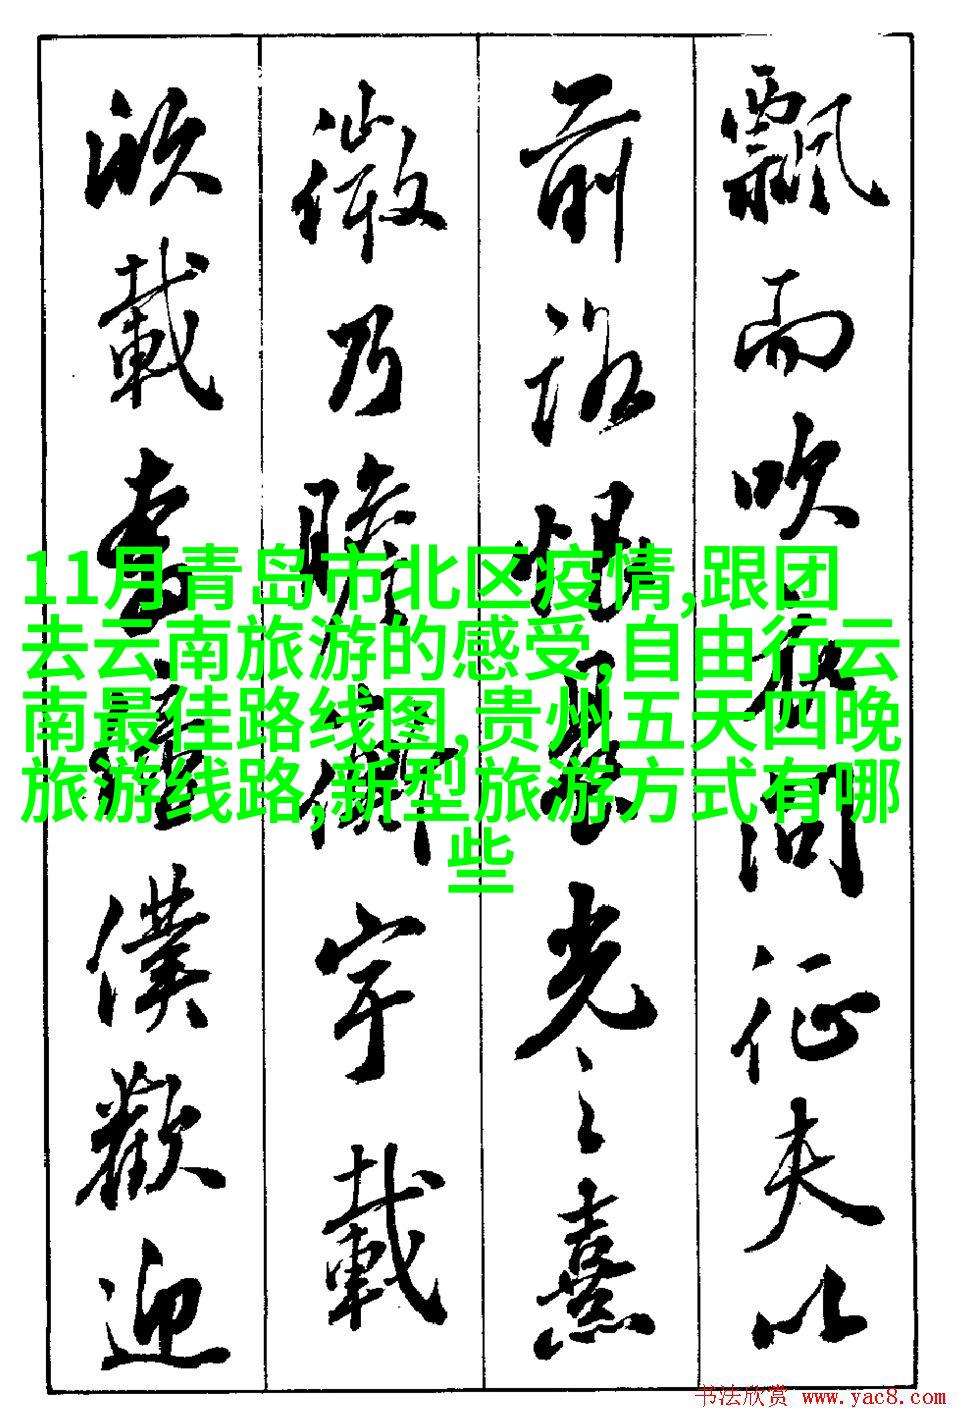 飄而吹衣问征夫以
前路恨晨光之熹
微乃瞻衡宇載
欣載奔僮僕歡迎
11月青岛市北区疫情,跟团
去云南旅游的感受,自由行云
南最佳路线图,贵州五天四晚
旅游线路,新型旅游方式有哪
些
书法欣赏 www.yac8.com